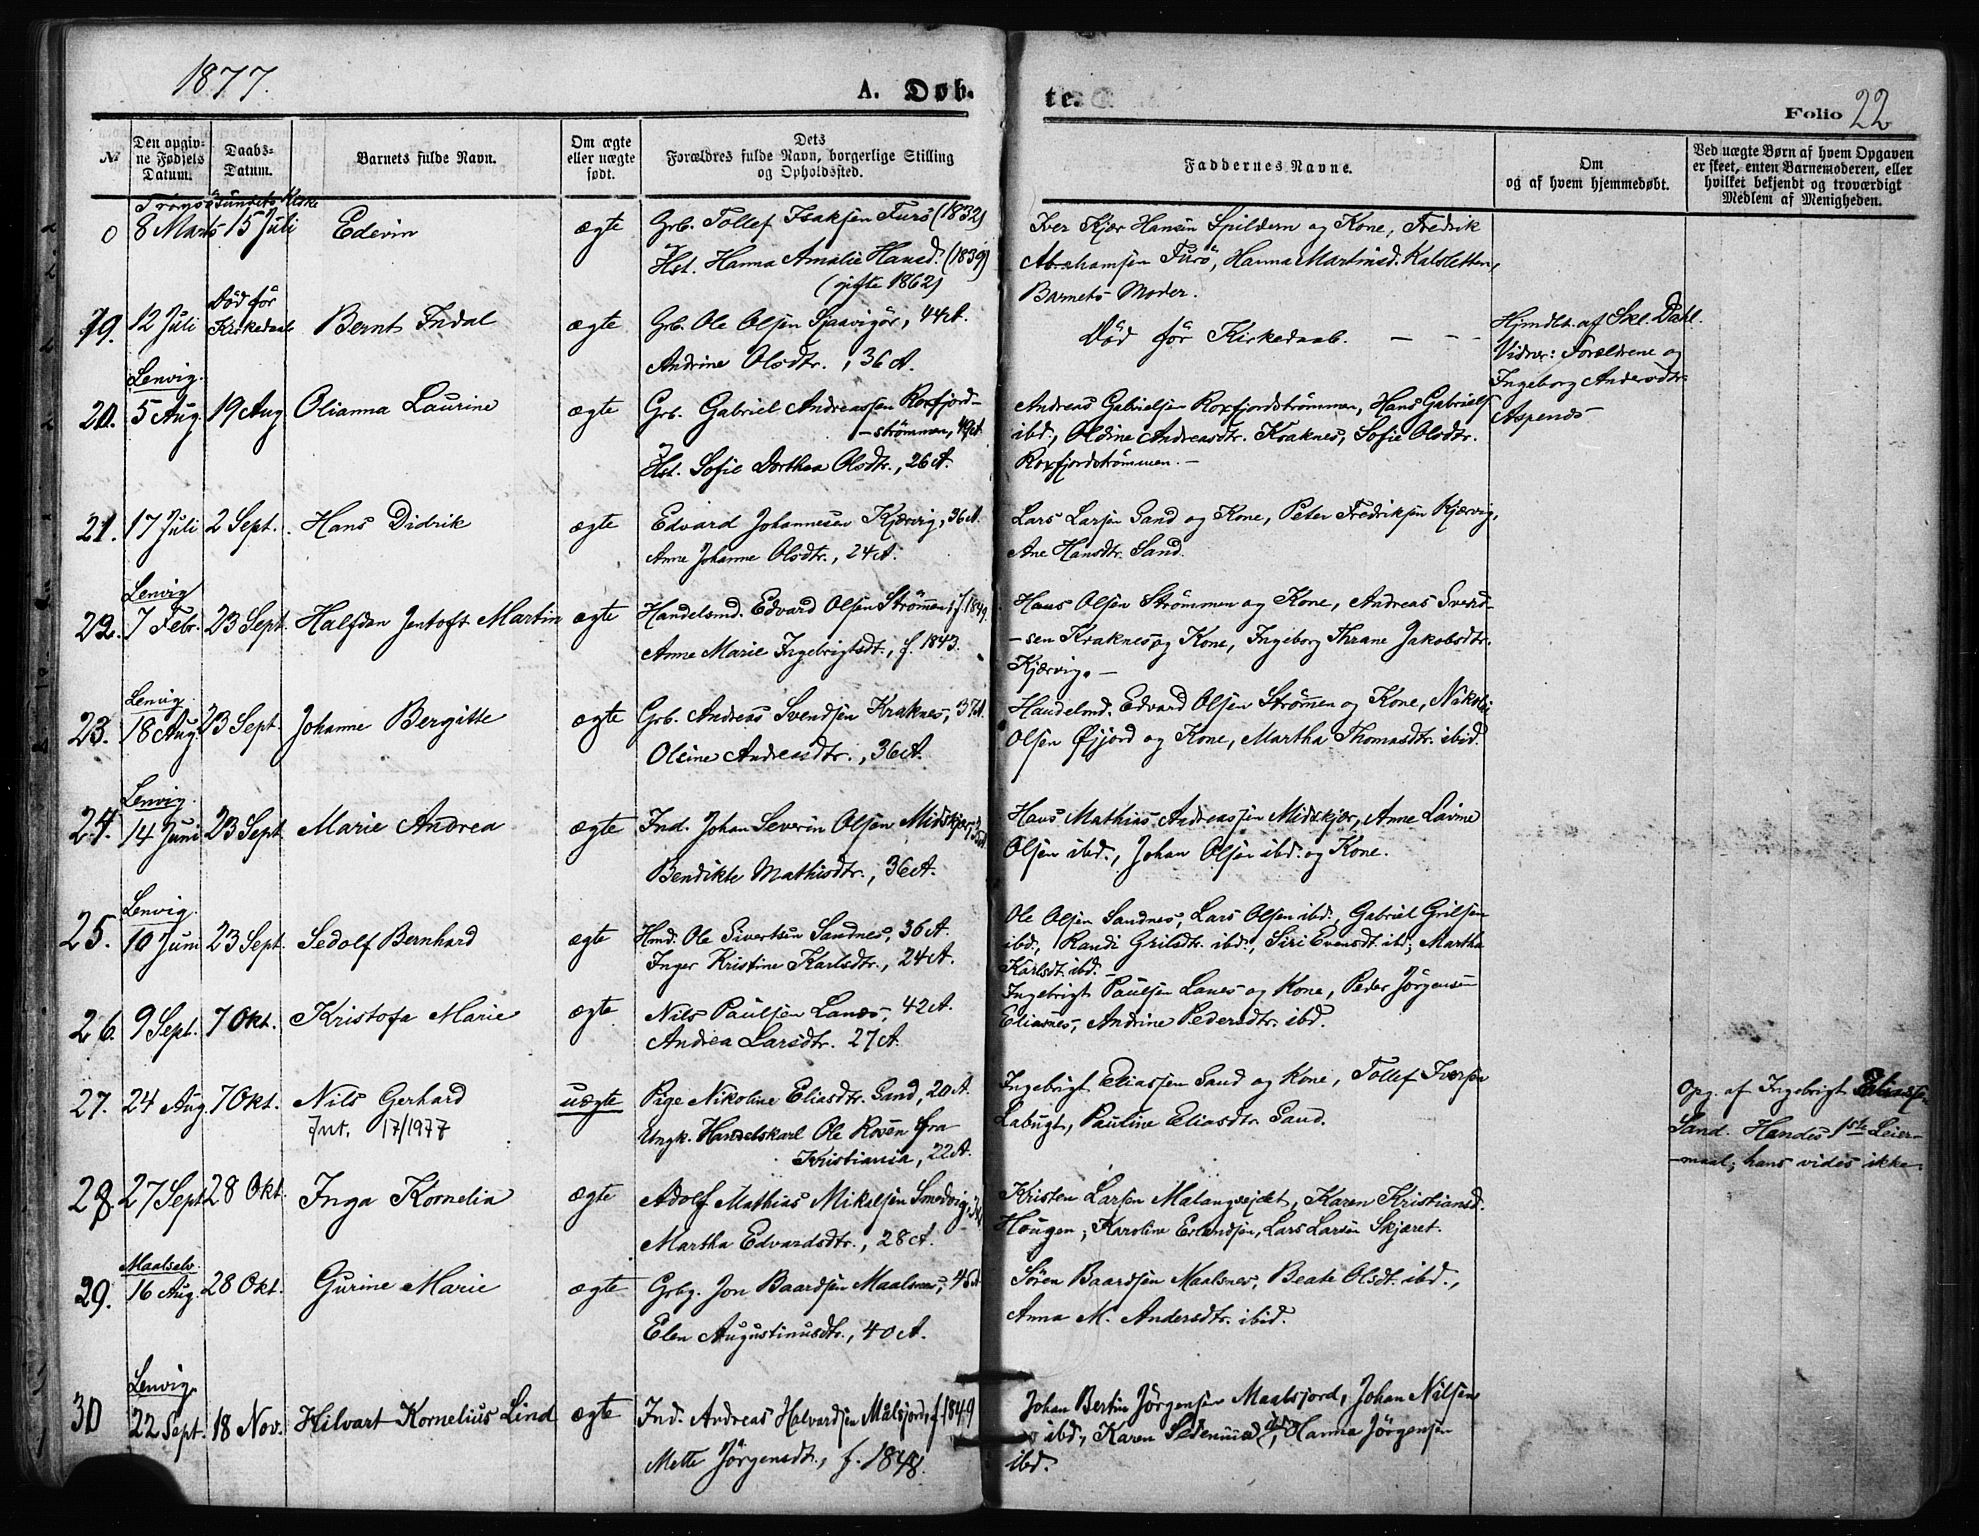 1877.
A. Døb.
te.
Folio 22
№
Den opgiv-
ne Fødsels
Datum.
Daabs-
Datum.
Barnets fulde Navn.
Om ægte
eller uægte
født.
Dets
Forældres fulde Navn, borgerlige Stilling
og Opholdssted.
Faddernes Navne.
Om
og af hvem hjemmedøbt.
Ved uægte Børn af hvem Opgaven
er skeet, enten Barnemoderen, eller
hvilket bekjendt og troværdigt
Medlem af Menigheden.
Tromsösundets Kirke
0 8 Marts 15 Juli Edevin ægte
Grb. Tollef Isaksen Furö (1832)
Hst. Hanna Amalie Hansd. (1839)
(gifte 1862)
Iver Kjær Hansen Spildern og Kone, Fredrik
Abrahamsen Furö, Hanna Martinsd. Kalsletten,
Barnets Moder.
19. 12 Juli Död för
Kirkedaab Bernt Indal ægte
Grb. Ole Olsen 44 A.
Andrine Olsdtr., 36 A.
Död för Kirkedaab. — — —
Hjmdbt. af Skl. Dahl.
Vidner: Forældrene og
Ingeborg Andersdtr.
Aspenes
Lenvig.
20. 5 Aug. 19 Aug Olianna Laurine ægte
Grb. Gabriel Andreassen Roxfjord-
-strömmen, 49 A
Hst. Sofie Dorthea Olsdtr., 26 A.
Andreas Gabrielsen Roxfjordströmmen, Hans Gabriels
ibd., Oldine Andreasdtr. Kraknes, Sofie Olsdtr.
Roxfjordströmmen. —
21. 17 Juli 2 Sept. Hans Didrik ægte
Edvard Johannesen Kjærvig, 36 A.
Anne Johanne Olsdtr., 24 A.
Lars Larsen Sand og Kone, Peter Fredriksen Kjærvig,
Ane Hansdtr. Sand.
Lenvig
22. 7 Febr. 23 Sept. Halfdan Jentoft Martin ægte
Handelsmd. Edvard Olsen Strömmen, f. 1849.
Anne Marie Ingebrigtsdt., f. 1843.
Hans Olsen Strömmen og Kone, Andreas Svend-
-sen Kraknes og Kone, Ingeborg Thrane Jakobsdtr.
Kjærvig. —
Lenvig
23. 18 Aug. 23 Sept Johanne Bergitte ægte
Grb. Andreas Svendsen Kraknes, 37 A.
Olsine Andreasdtr., 36 A.
Handelsmd. Edvard Olsen Strömen og Kone, Nikolai
Olsen Øijord og Kone, Martha Thomasdtr. ibid.
Lenvig
24. 14 Juni 23 Sept Marie Andrea ægte
Ind. Johan Severin Olsen Midskjær,
Bendikte Mathisdtr., 36 A.
Hans Mathias Andreassen Midskjær, Anne Lavine
Olsen ibd., Johan Olsen ibd. og Kone.
Lenvig.
25. 10 Juni 23 Sept. Sedolf Bernhard ægte
Hmd. Ole Sivertsen Sandnes, 36 A.
Inger Kristine Karlsdtr., 24 A.
Ole Olsen Sandnes, Lars Olsen ibd., Gabriel Grilsen
ibd., Randi Grilsdtr. ibd., Siri Evensdt. ibd., Martha
Karlsdt. ibd. —
26. 9 Sept. 7 Okt. Kristofa Marie ægte
Nils Paulsen Lanes, 42 A.
Andrea Larsdtr. 27 A.
Ingebrigt Paulsen Lanes og Kone, Peder Jörgensen
Eliasnes, Andrine Pedersdtr. ibd.
27. 24 Aug 7 Okt. Nils Gerhard uægte
Int. 17/1977
Pige Nikoline Eliasdtr. Sand, 20 A.
Ungk. Handelskarl Ole Rosen fra
Kristiania, 22 A.
Ingebrigt Eliassen Sand og Kone, Tollef Iversen
Labugt, Pauline Eliasdtr. Sand.
Opg. af Ingebrigt Eliassen
Sand. Hendes 1ste Leier-
-maal; hans vides ikke.
28. 27 Sept 28 Okt. Inga Kornelia ægte
Adolf Mathias Mikalsen Smedvig,
Martha Edvardsdtr., 28 A.
Kristen Larsen Malangseidet, Karen Kristiansd.
Hougen, Karoline Erlandsen, Lars Larsen Skjæret.
Maalselv
29. 16 Aug. 28 Okt. Gurine Marie ægte
Grbg. Jon Baardsen Maalsnes, 45 A
Elen Augustinusdtr., 40 A.
Sören Baardsen Maalsnes, Beate Olsdt. ibd.,
Anna M. Andersdtr. ibid.
Lenvig.
30 22 Sept. 18 Nov. Hilvart Kornelius Lind ægte
Ind. Andreas Halvardsen Målsjord, f. 1849
Mette Jörgensdtr., f. 1848.
Johan Bertin Jörgensen Maalsjord, Johan Nilsen
ibd., Karen ibd., Hanna Jörgensen
ibd.